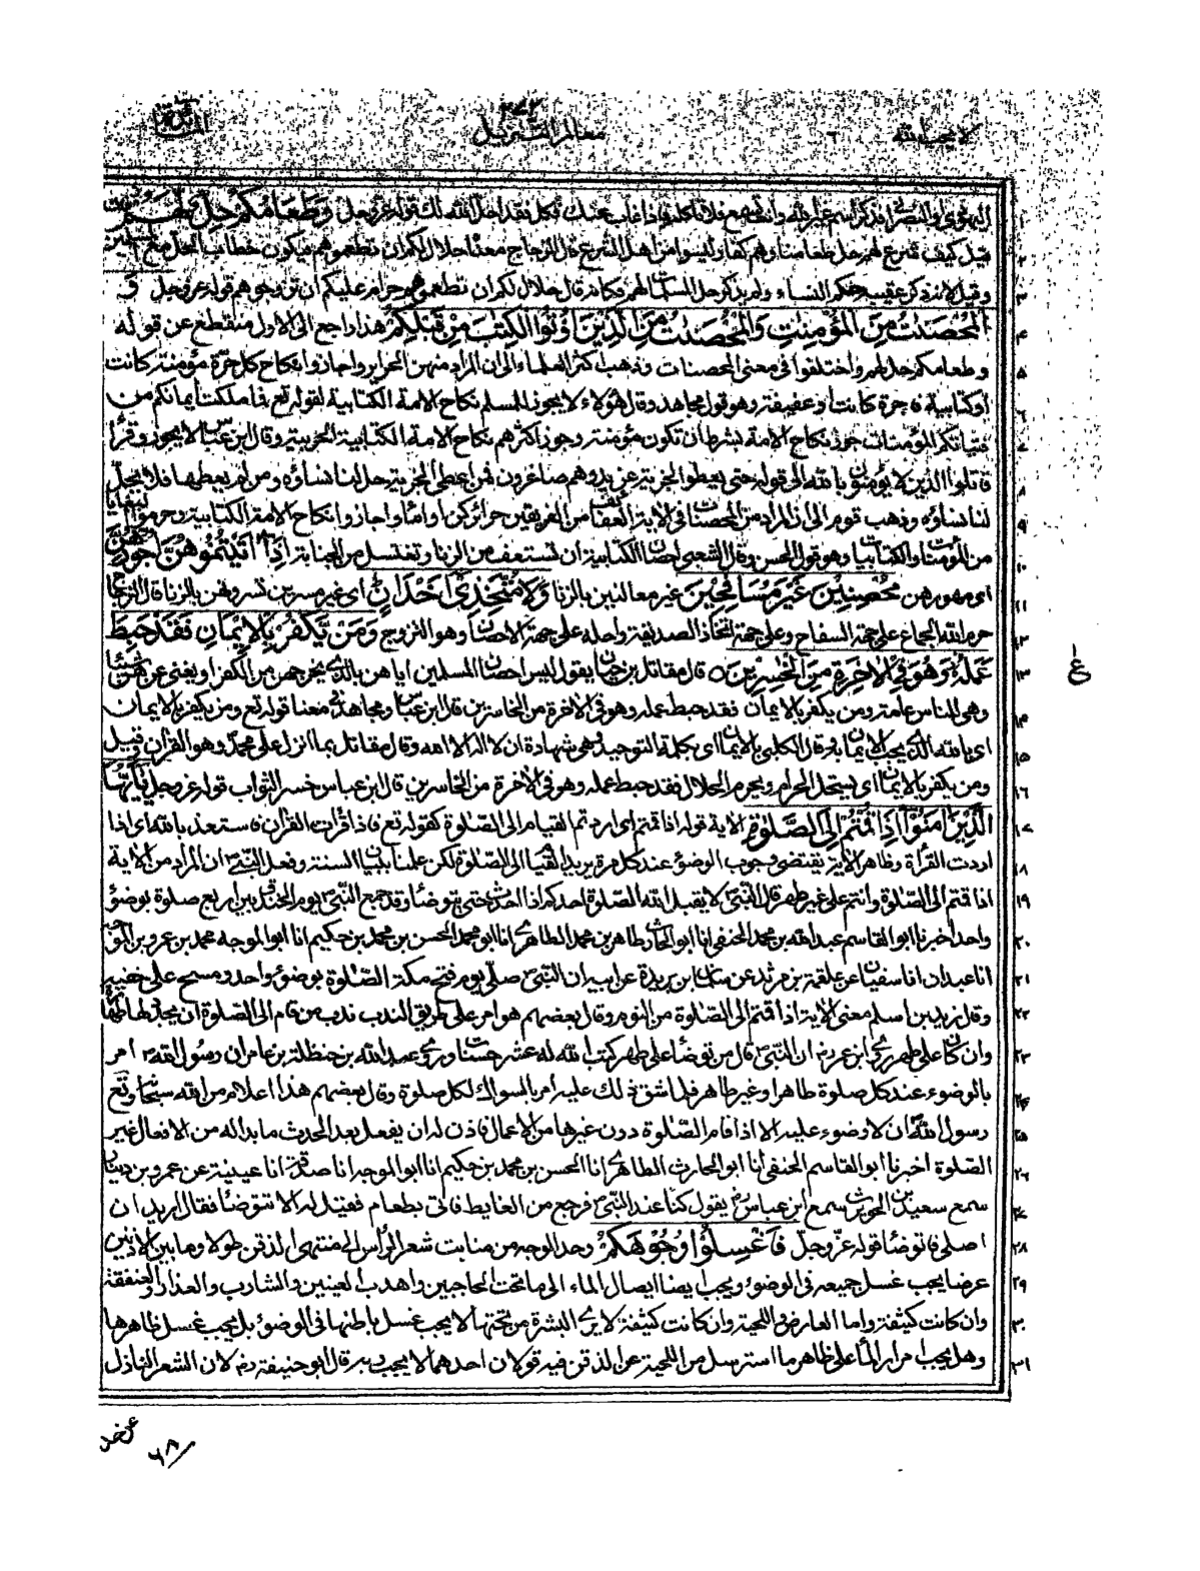 لا يحب الله ٦ معالم التنزيل ٢٧٢ المائدة
١ اليهودى والنصرانى فذكر اسم غير الله وانت تسمع فلا تأكله فاذا غاب عنك فكل فقد احل الله لك قوله عز وجل وَطَعَامُكُمْ حِلٌّ لَّهُمْ
٢ قيل كيف شرع لهم حل طعامنا وهم كفار ليسوا من اهل الشرع قال الزجاج معناه حلال لكم ان تطعموهم فيكون خطاب الحل مع المسلمين
٣ وقيل لانه ذكر عقيبه حكم النساء ولم يذكر حل المسلمات لهم فكانه قال حلال لكم ان تطعموهم حرام عليكم ان تزوجوهم قوله عز وجل وَ
٤ الْمُحْصَنٰتُ مِنَ الْمُؤْمِنٰتِ وَالْمُحْصَنٰتُ مِنَ الَّذِيْنَ اُوْتُوا الْكِتٰبَ مِنْ قَبْلِكُمْ هذا راجع الى الاول منقطع عن قوله
٥ وطعامكم حل لهم واختلفوا فى معنى المحصنات وذهب اكثر العلماء الى ان المراد منهن الحراير واجازوا نكاح كل حرة مؤمنة كانت
٦ او كتابية فاجرة كانت او عفيفة وهو قول مجاهد وقال هؤلاء لا يجوز للمسلم نكاح الامة الكتابية لقوله تع فما ملكت ايمانكم من
٧ فتياتكم المؤمنات جوز نكاح الامة بشرط ان تكون مؤمنة وجوز اكثرهم نكاح الامة الكتابية الحربية وقال ابن عباس لا يجوز وقرأ
٨ قاتلوا الذين لا يؤمنون بالله الى قوله حتى يعطوا الجزية عن يد وهم صاغرون فمن اعطى الجزية حل لنا نساؤه ومن لم يعطها فلا يحل
٩ لنا نساؤه وذهب قوم الى ان المراد من المحصنات فى الاية العفائف من الفريقين حرائر كن او اماء واجازوا نكاح الامة الكتابية وحرموا البغايا
١٠ من المؤمنات والكتابيات وهو قول الحسن وقال الشعبى احصان الكتابية ان تستعف من الزنا وتغتسل من الجنابة اِذَآ اٰتَيْتُمُوْهُنَّ اُجُوْرَهُنَّ
١١ اى مهورهن مُحْصِنِيْنَ غَيْرَ مُسَافِحِيْنَ غير معالنين بالزنا وَلَا مُتَّخِذِىْٓ اَخْدَانٍ اى غير مسرين تسرونهن بالزنا قال الزجاج
١٢ حرم الله الجماع على جهة السفاح وعلى جهة اتخاذ الصديقة واحله على جهة الاحصان وهو التزوج وَمَنْ يَّكْفُرْ بِالْاِيْمَانِ فَقَدْ حَبِطَ
١٣ عَمَلُهٗ وَهُوَ فِى الْاٰخِرَةِ مِنَ الْخٰسِرِيْنَ ٥ قال مقاتل بن حيان يقول ليس احصان المسلمين اياهن بالذى يخرجهن من الكفر او يغنى عنهن شيئا
١٤ وهى للناس عامة ومن يكفر بالايمان فقد حبط عمله وهو فى الاخرة من الخاسرين قال ابن عباس ومجاهد فى معنا قوله تع ومن يكفر بالايمان
١٥ اى بالله الذى يجب الايمان به وقال الكلبى بالايمان اى بكلمة التوحيد وهى شهادة ان لا اله الا الله وقال مقاتل بما انزل على محمد وهو القرآن وقيل
١٦ ومن يكفر بالايمان اى يستحل الحرام ويحرم الحلال فقد حبط عمله وهو فى الآخرة من الخاسرين قال ابن عباس خسر الثواب قوله عز وجل يٰٓاَيُّهَا
١٧ الَّذِيْنَ اٰمَنُوْٓا اِذَا قُمْتُمْ اِلَى الصَّلٰوةِ الاية قوله اذا قمتم اى اردتم القيام الى الصلوة كقوله تع فاذا قرأت القران فاستعذ بالله اى اذا
١٨ اردت القرأة وظاهر الاية يقتضى وجوب الوضؤ عند كل مرة يريد القيام الى الصلوة لكن علمنا ببيان السنة وفعل النبى ان المراد من الاية
١٩ اذا قمتم الى الصلوة وانتم على غير طهر قال النبى لا يقبل الله الصلوة احدكم اذا احدث حتى يتوضأ وقد جمع النبى يوم الخندق بين اربع صلوة بوضؤ
٢٠ واحد اخبرنا ابو القاسم عبد الله بن محمد الحنفى انا ابو الحارث طاهر بن محمد الطاهرى انا ابو محمد الحسن بن محمد بن حكيم انا ابو الموجه محمد بن عمرو بن الموجه
٢١ انا عبدان انا سفيان عن علقمة بن مرثد عن سليمان ابن بريدة عن ابيه ان النبى صلى يوم فتح مكة الصلوة بوضؤ واحد ومسح على خفيه
٢٢ وقال زيد بن اسلم معنى الاية اذا قمتم الى الصلوة من النوم وقال بعضهم هو امر على طريق الندب ندب من قام الى الصلوة ان يجدد لها طهارة
٢٣ وان كان على طهر روى ابن عمر رض ان النبى قال من توضأ على طهر كتب الله له عشر حسنات وروى عبد الله بن حنظلة بن عامر ان رسول الله امر
٢٤ بالوضوء عند كل صلوة طاهرا وغير طاهر فلما شق ذلك عليه امر بالسواك لكل صلوة وقال بعضهم هذا اعلام من الله سبحانه وتع
٢٥ رسول الله ان لا وضوء عليه الا اذا قام الصلوة دون غيرها من الاعمال فاذن له ان يفعل بعد الحدث ما بدا له من الافعال غير
٢٦ الصلوة اخبرنا ابو القاسم الحنفى انا ابو الحارث الطاهرى انا الحسن بن محمد بن حكيم انا ابو الموجه انا صدقة انا عيينة عن عمرو بن دينار
٢٧ سمع سعيد بن الحويرث سمع ابن عباس رض يقول كنا عند النبى فرجع من الغايط فاتى بطعام فقيل له الا تتوضأ فقال لم يد ان
٢٨ اصلى فاتوضأ قوله عز وجل فَاغْسِلُوْا وُجُوْهَكُمْ وحد الوجه من منابت شعر الرأس الى منتهى الذقن طولا وما بين الاذنين
٢٩ عرضا يجب غسل جميعه فى الوضؤ ويجب ايضا ايصال الماء الى ما تحت الحاجبين واهداب العينين والشارب والعذار والعنفقة
٣٠ وان كانت كثيفة واما العارض واللحية وان كانت كثيفة لا يرى البشرة من تحتها لا يجب غسل باطنها فى الوضؤ بل يجب غسل ظاهرها
٣١ وهل يجب امرار الماء على ظاهر ما استرسل من اللحية عن الذقن فيه قولان احدهما لا يجب وبه قال ابو حنيفة رض لان الشعر النازل
ع